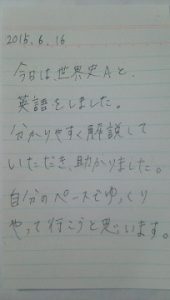 2015.6.16
今日は、世界史Aと、
英語をしました。
分かりやすく解説して
いただき、助かりました。
自分のペースでゆっくり
やって行こうと思います。